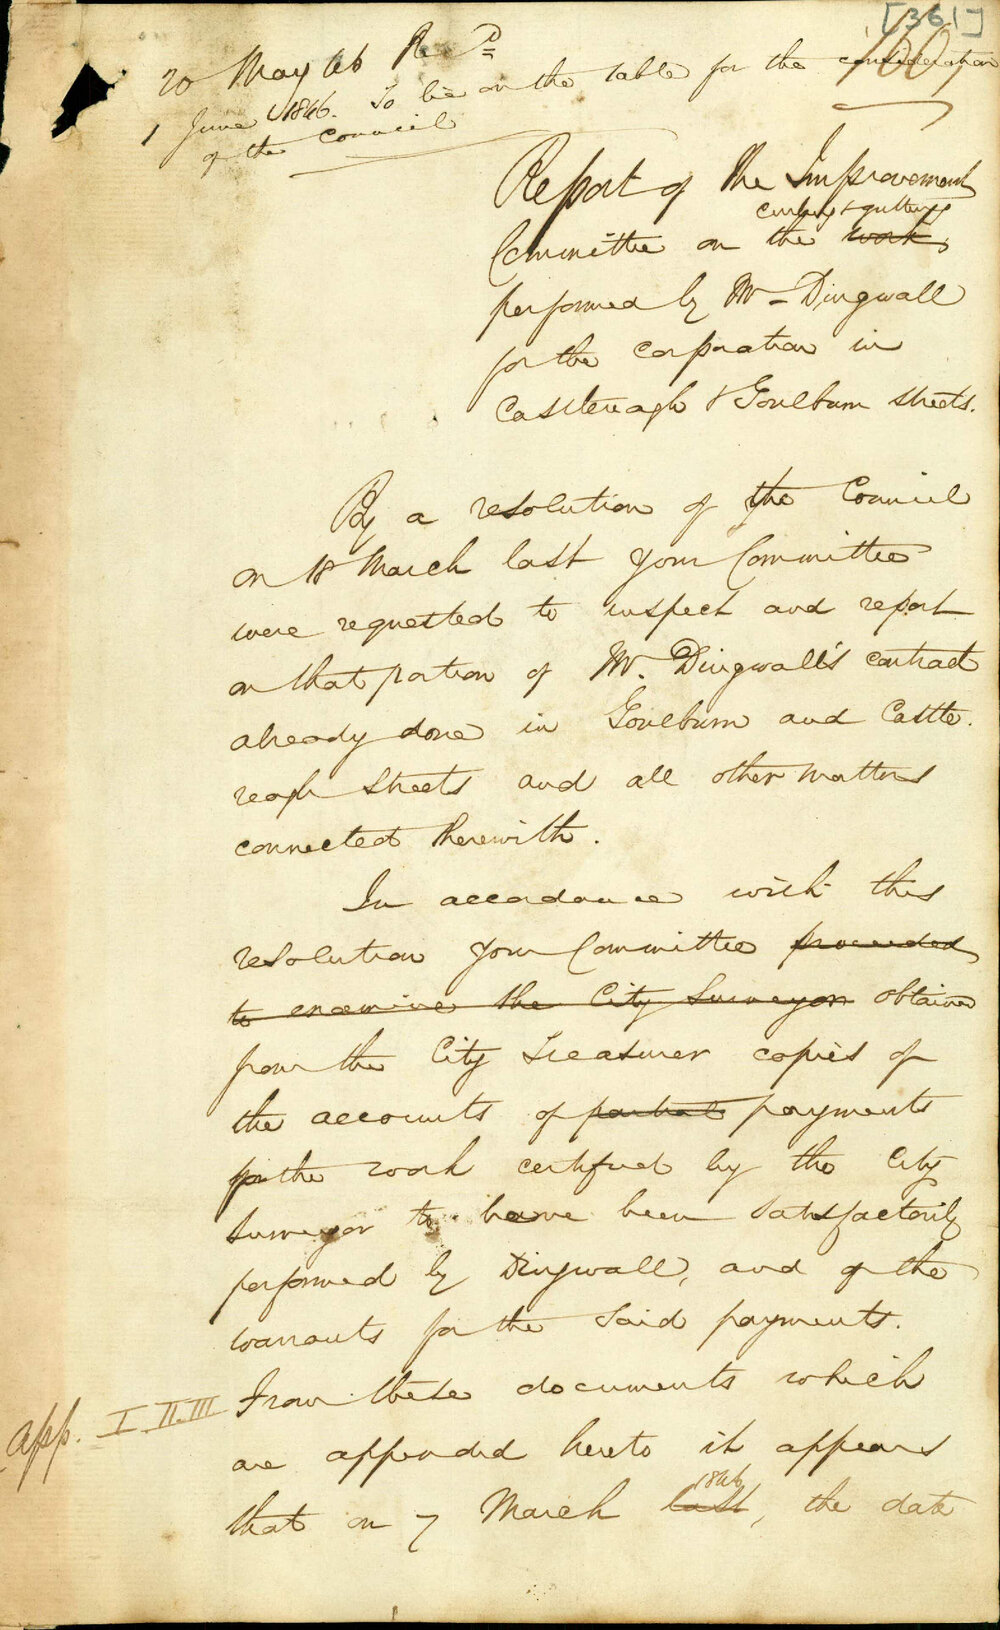 [361]
160,
20 May 46 Recd
1 June 1846. To lie on the table for the consideration
of the Council
Report of the Improvement
curbing & guttering
Committee on the work
performed by Mr Dingwall
for the corporation in
Castlereagh & Goulburn streets.
By a resolution of the Council
on 18 March last your Committee
were requested to inspect and report
on that portion of Mr. Dingwall's contract
already done in Goulburn and Castle-
reagh Streets and all other matters
connected therewith.
In accordance with this
resolution your Committee proceeded
to examine the City Surveyor obtained
from the City Treasurer copies of
the accounts of partial payments
for the work certified by the City
Surveyor to have been satisfactorily
performed by Dingwall, and of the
warrants for the said payments.
App. I. II. III From these documents which
are appended hereto it appears
1846
that on 7 March last, the date